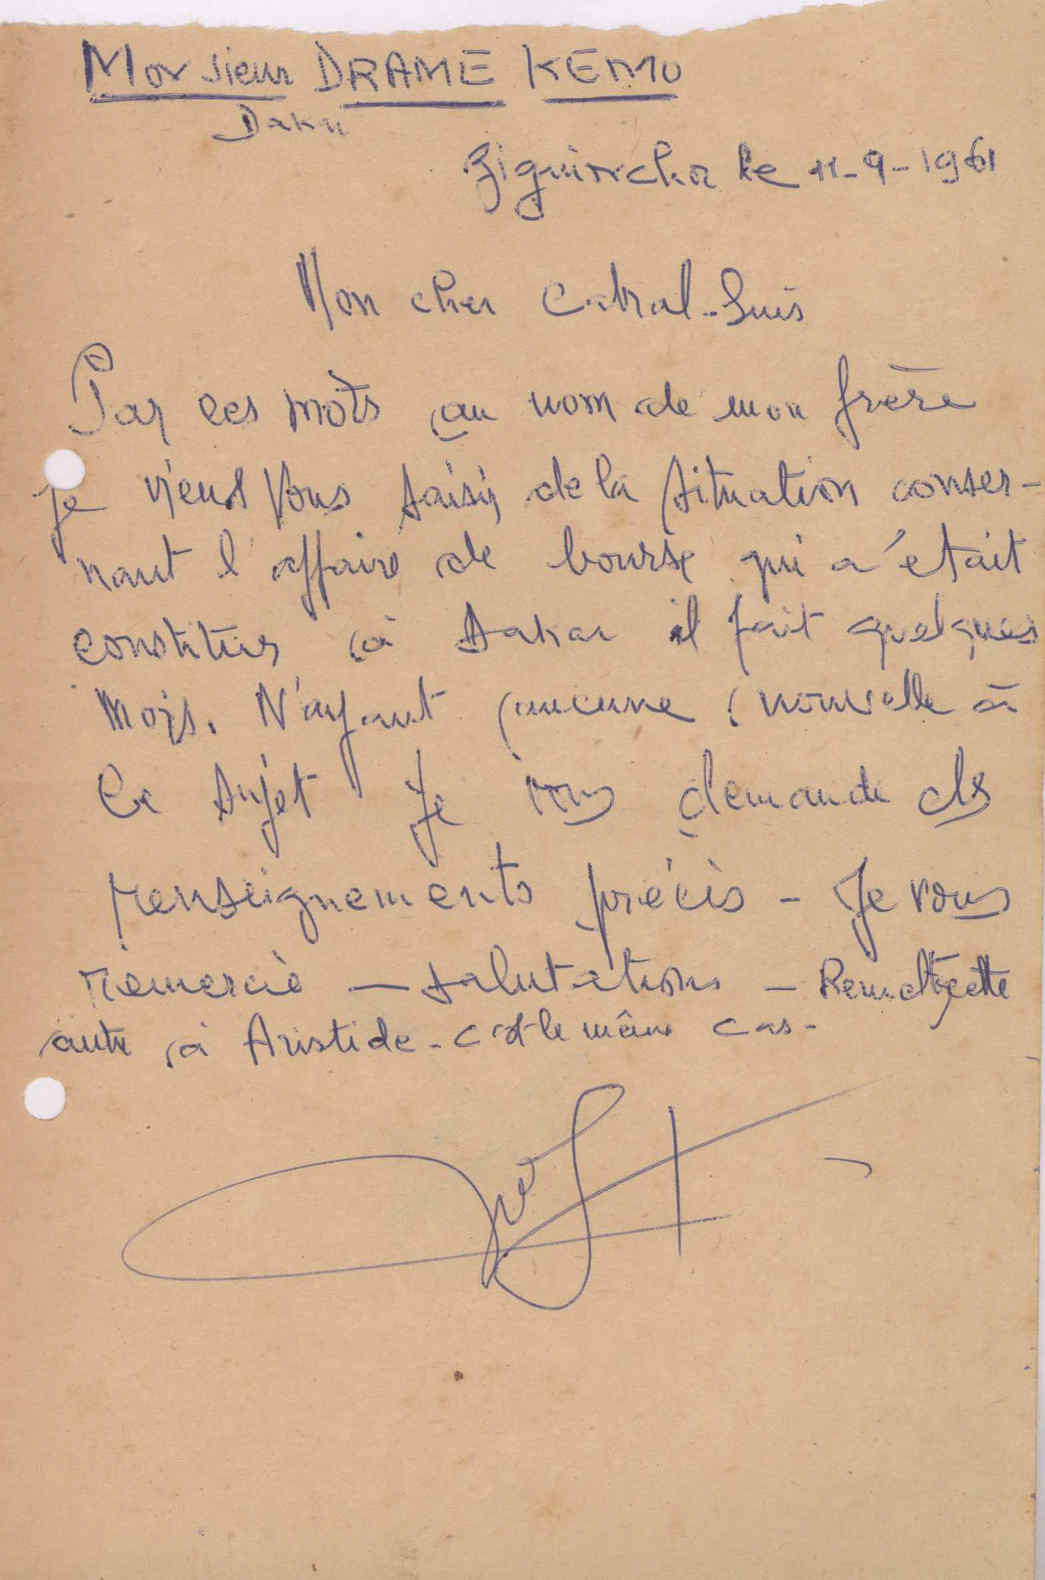 Monsieur DRAME KEMO
Ziguinchor le 11-9-1961
Mon cher Cabral-Luis
Par ces mots au nom de mon frère
je viens vous saisir de la situation conser-
nant l'affaire de bourse qui a était
constituer à Dakar il fait quelques
mois. N'ayant aucune nouvelle à
ce sujet Je vous demande des
renseignements précis - Je vous
remercie - salutations - Remettez cette
autre à Aristide - c'est le même cas -